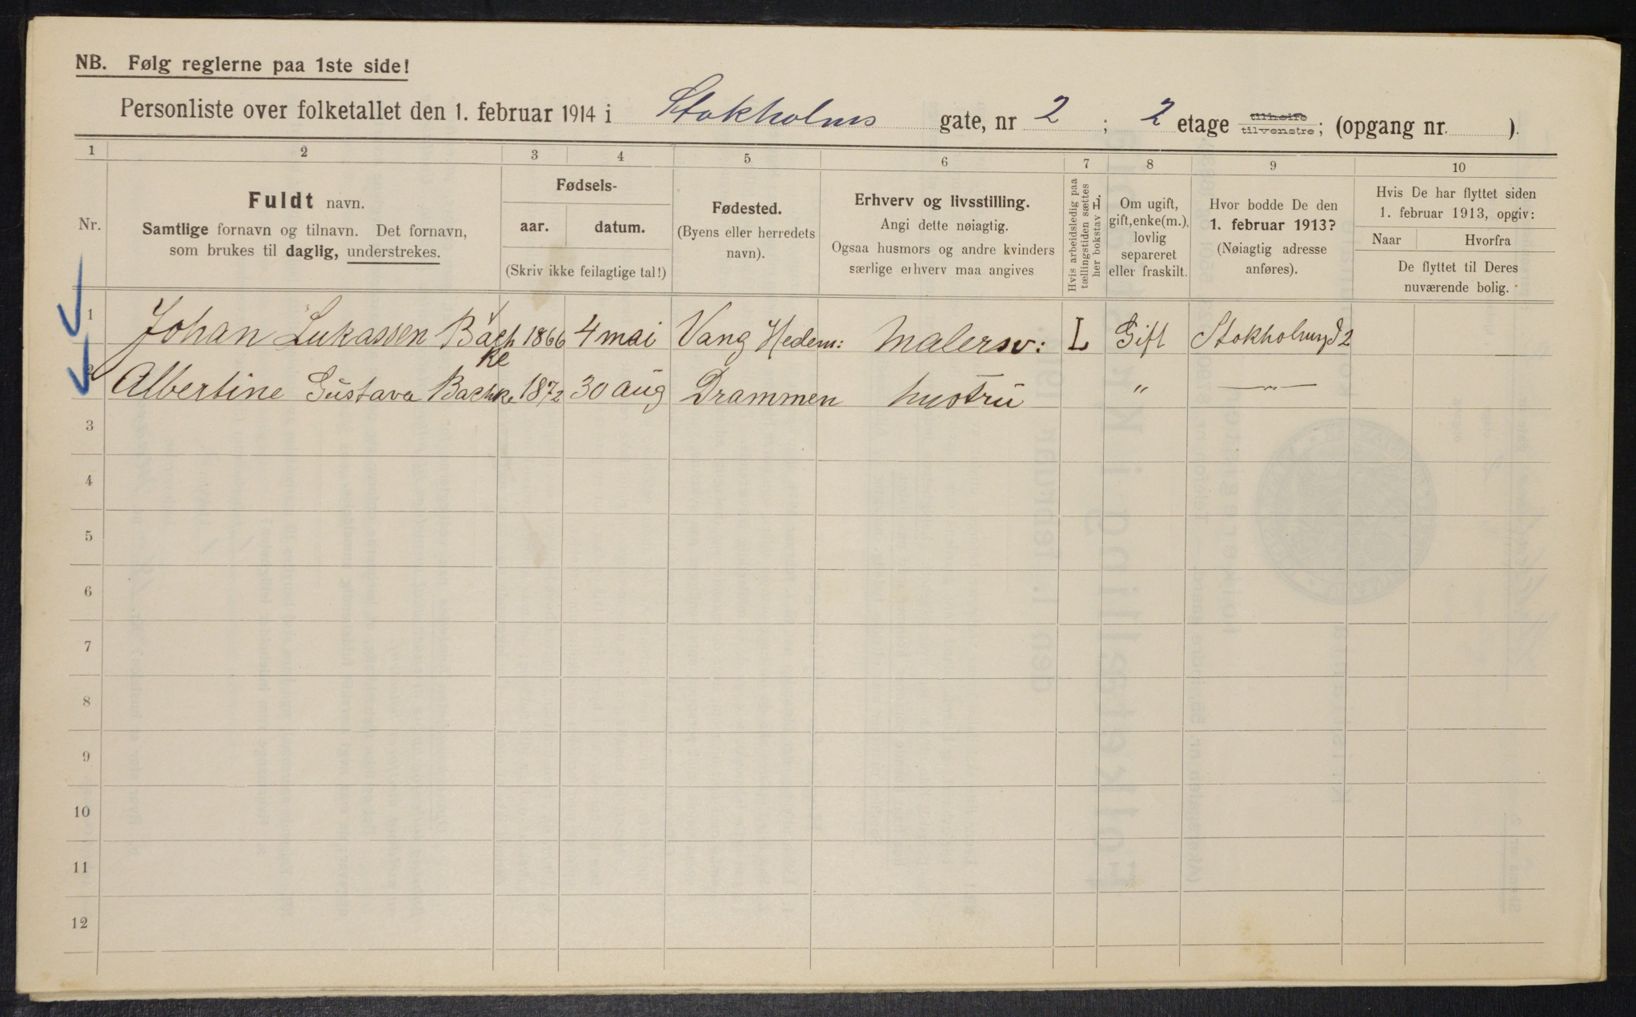 NB. Følg reglerne paa 1ste side!
Personliste over folketallet den 1. februar 1914 i Stokholms gate, nr 2 ; 2 etage tilhøire tilvenstre; (opgang nr. ).
1 2 3 4 5 6 7 8 9 10
Nr.
Fuldt navn.
Samtlige fornavn og tilnavn. Det fornavn,
som brukes til daglig, understrekes.
Fødsels-
aar. datum.
(Skriv ikke feilagtige tal!)
Fødested.
(Byens eller herredets
navn).
Erhverv og livsstilling.
Angi dette nøiagtig.
Ogsaa husmors og andre kvinders
særlige erhverv maa angives
Hvis arbeidsledig paa
tællingstiden sættes
her bokstav L.
Om ugift,
gift, enke(m.),
lovlig
separeret
eller fraskilt.
Hvor bodde De den
1. februar 1913?
(Nøiagtig adresse
anføres).
Hvis De har flyttet siden
1. februar 1913, opgiv:
Naar Hvorfra
De flyttet til Deres
nuværende bolig.
1 Johan Lukassen Bach ke 1866 4 mai Vang Hedem: Malersv: L Gift Stokholmsgd 2
2 Albertine Gustava Bachke 1872 30 aug Drammen hustru " — " —
3
4
5
6
7
8
9
10
11
12